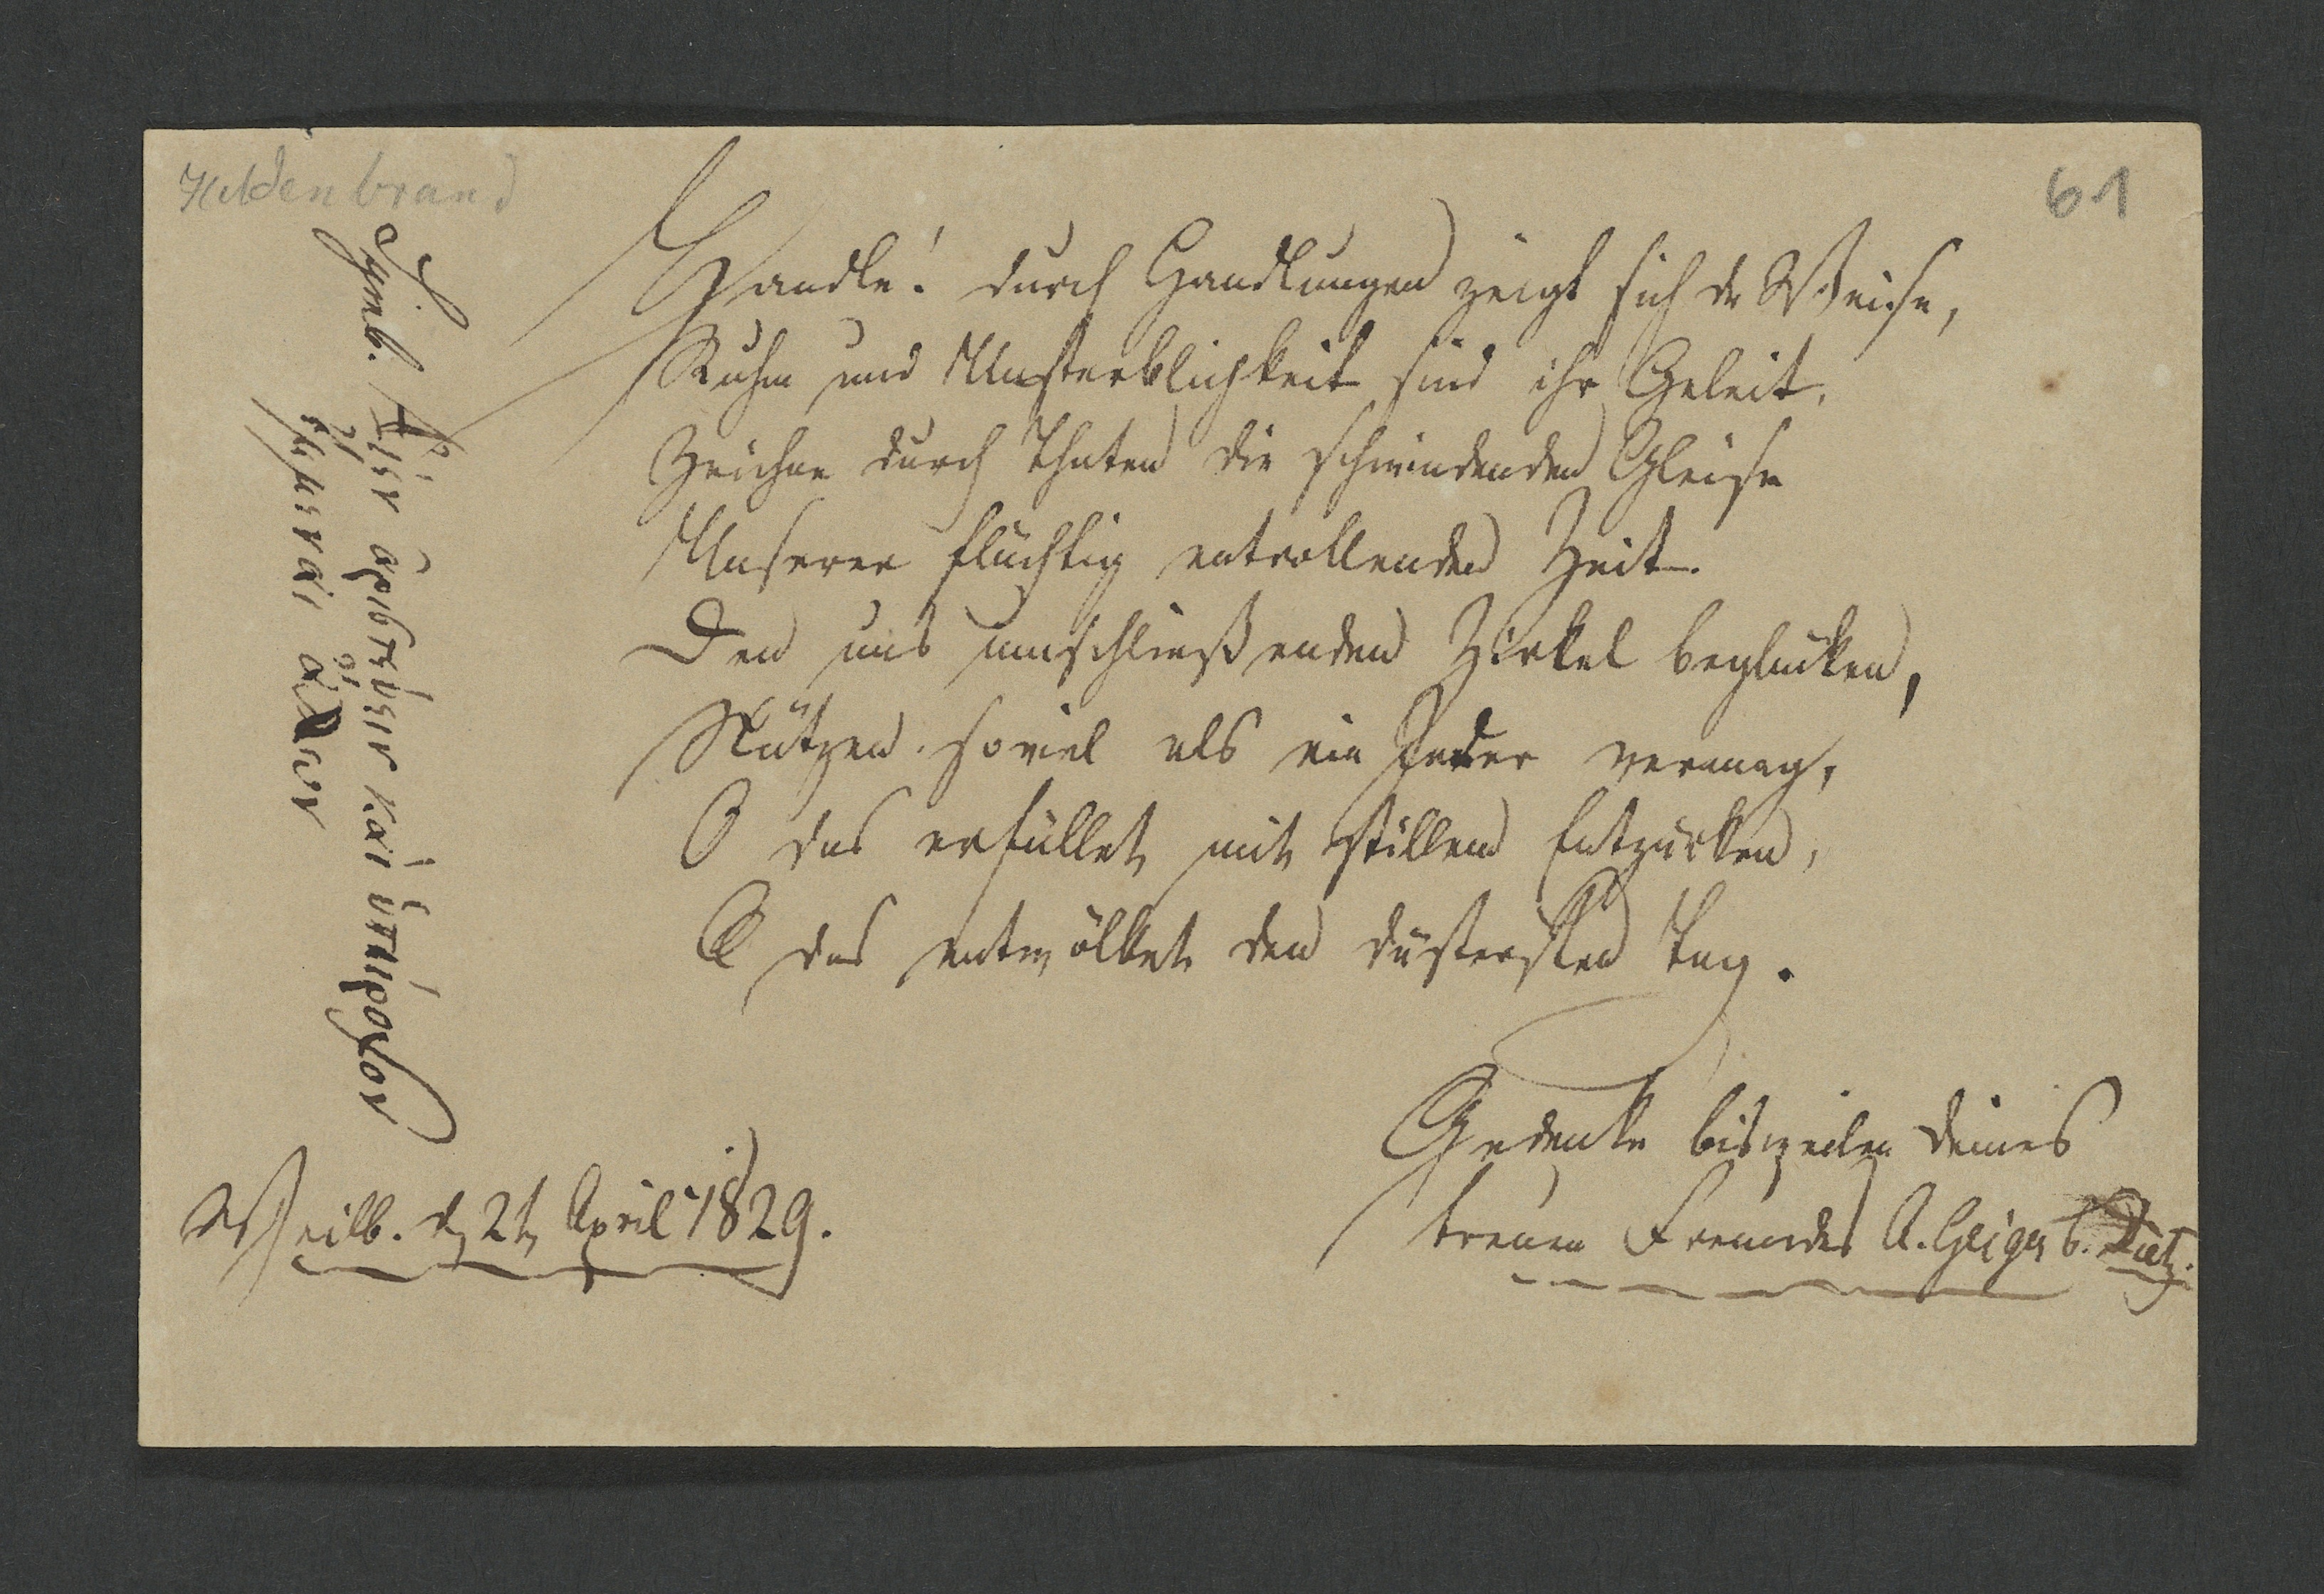 Hildenbrand
61
Handle! durch Handlungen zeigt sich der Weise,
Ruhm und Unsterblichkeit sind ihr Geleit.
Zeichne durch Thaten die schwindenden Gleise
Unserer flüchtig entrollenden Zeit.
Den uns umschließenden Zirkel beglücken,
Nützen soviel als ein Jeder vermag,
O das erfüllet mit stillem Entzücken,
O das entwölket den düstersten Tag.
Symb. Αἰὲν ἀριστεύειν καὶ ὑπείροχον
ἔμμεναι ἄλλων
Gedenke bisweilen deines
treuen Freundes A. Geiger b. Dietz.
Weilb. d 2t April 1829.